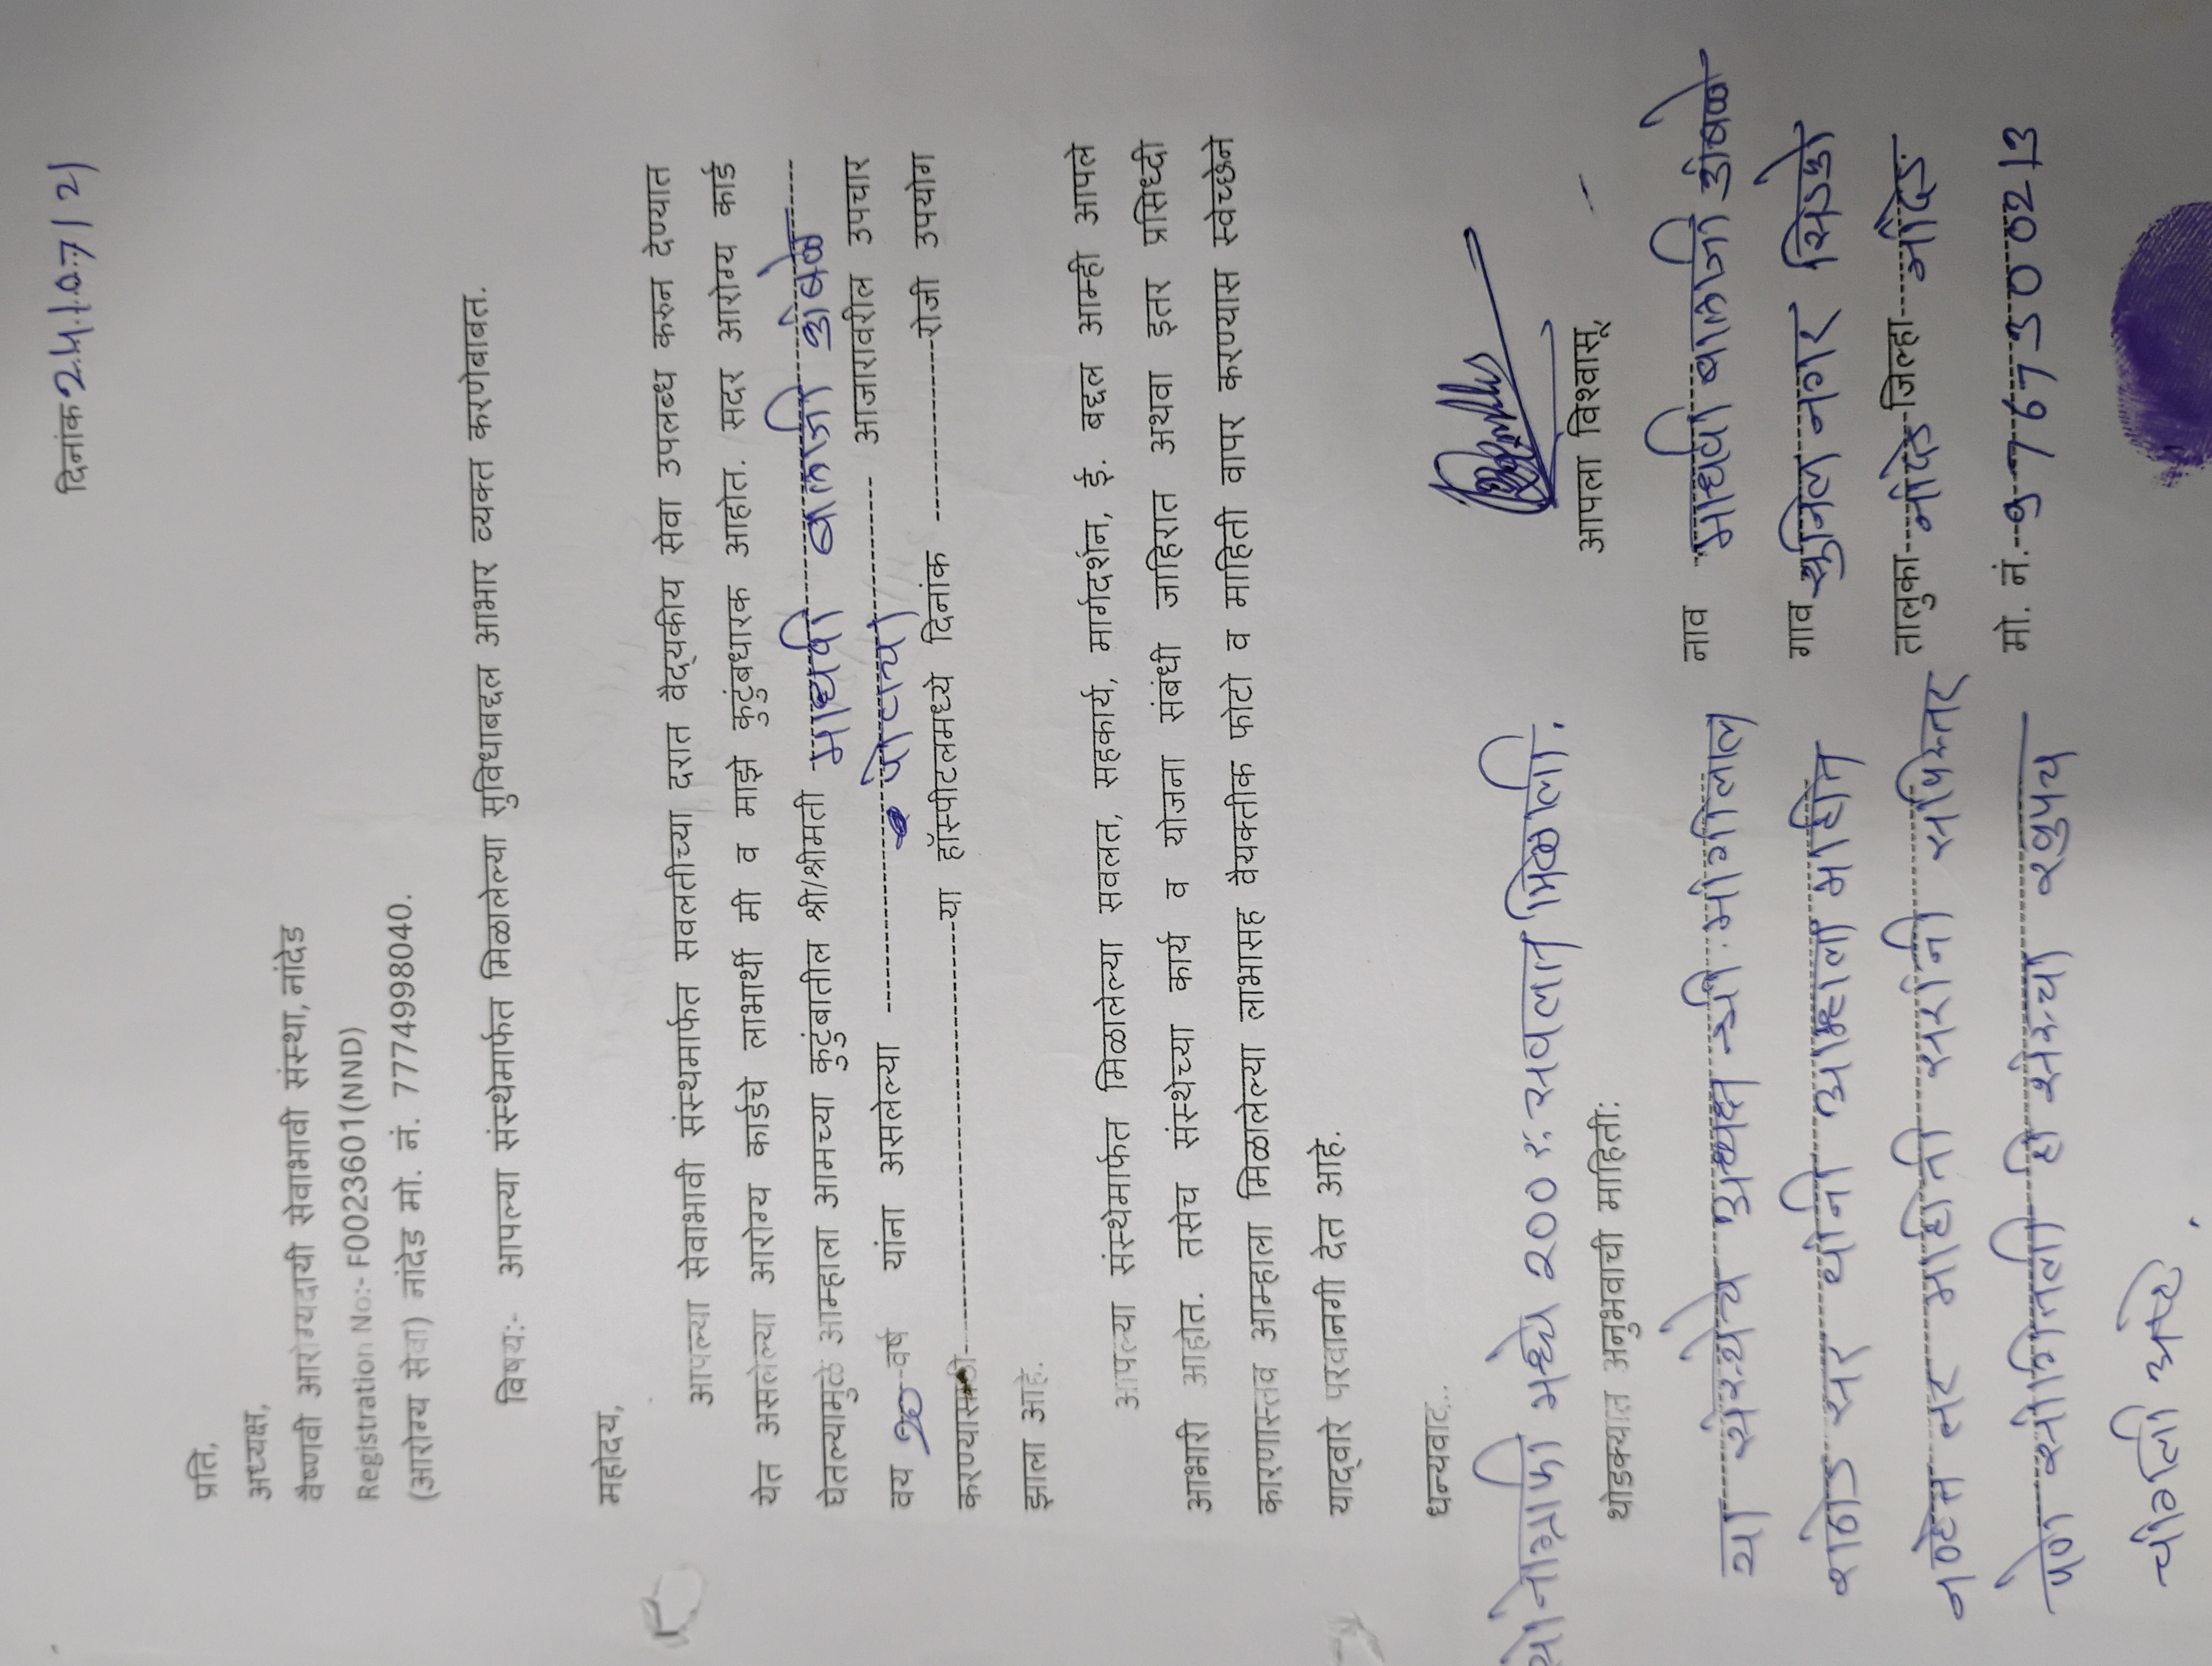 दिनांक 24/07/21
प्रति,
अध्यक्ष,
वैष्णवी आरोग्यदायी सेवाभावी संस्था, नांदेड
Registration No:- F0023601(NND)
(आरोग्य सेवा) नांदेड मो. नं. 7774998040.
विषय:- आपल्या संस्थेमार्फत मिळालेल्या सुविधाबद्दल आभार व्यक्त करणेबाबत.
महोदय,
आपल्या सेवाभावी संस्थमार्फत सवलतीच्या दरात वैद्यकीय सेवा उपलब्ध करुन देण्यात
येत असलेल्या आरोग्य कार्डचे लाभार्थी मी व माझे कुटुंबधारक आहोत. सदर आरोग्य कार्ड
घेतल्यामुळे आम्हाला आमच्या कुटुंबातील श्री/श्रीमती माधवी बालाजी
वय 20 वर्ष यांना असलेल्या पोटाचा आजारावरील उपचार
करण्यासाठी या हॉस्पीटलमध्ये दिनांक रोजी उपयोग
झाला आहे.
आपल्या संस्थेमार्फत मिळालेल्या सवलत, सहकार्य, मार्गदर्शन, ई. बद्दल आम्ही आपले
आभारी आहोत. तसेच संस्थेच्या कार्य व योजना संबंधी जाहिरात अथवा इतर प्रसिध्दी
कारणास्तव आम्हाला मिळालेल्या लाभासह वैयक्तीक फोटो व माहिती वापर करण्यास स्वेच्छेने
याद्वारे परवानगी देत आहे.
धन्यवाद..
सोनोग्राफी मध्ये 200 रु. सवलत मिळाली.
आपला विश्वासू,
थोडक्यात अनुभवाची माहिती:
नाव माधवी बालाजी
या संस्थेचे अध्यक्ष श्री मांगीलाल
गाव सुनिल नगर सिडको
राठोड सर यांनी आम्हाला माहीत
तालुका नांदेड जिल्हा नांदेड
नव्हेत तर माहीती त्यांनी सविस्तर
मो. नं. 9767300213
पणे सांगितली ही संस्था खुपच
चांगली आहे.